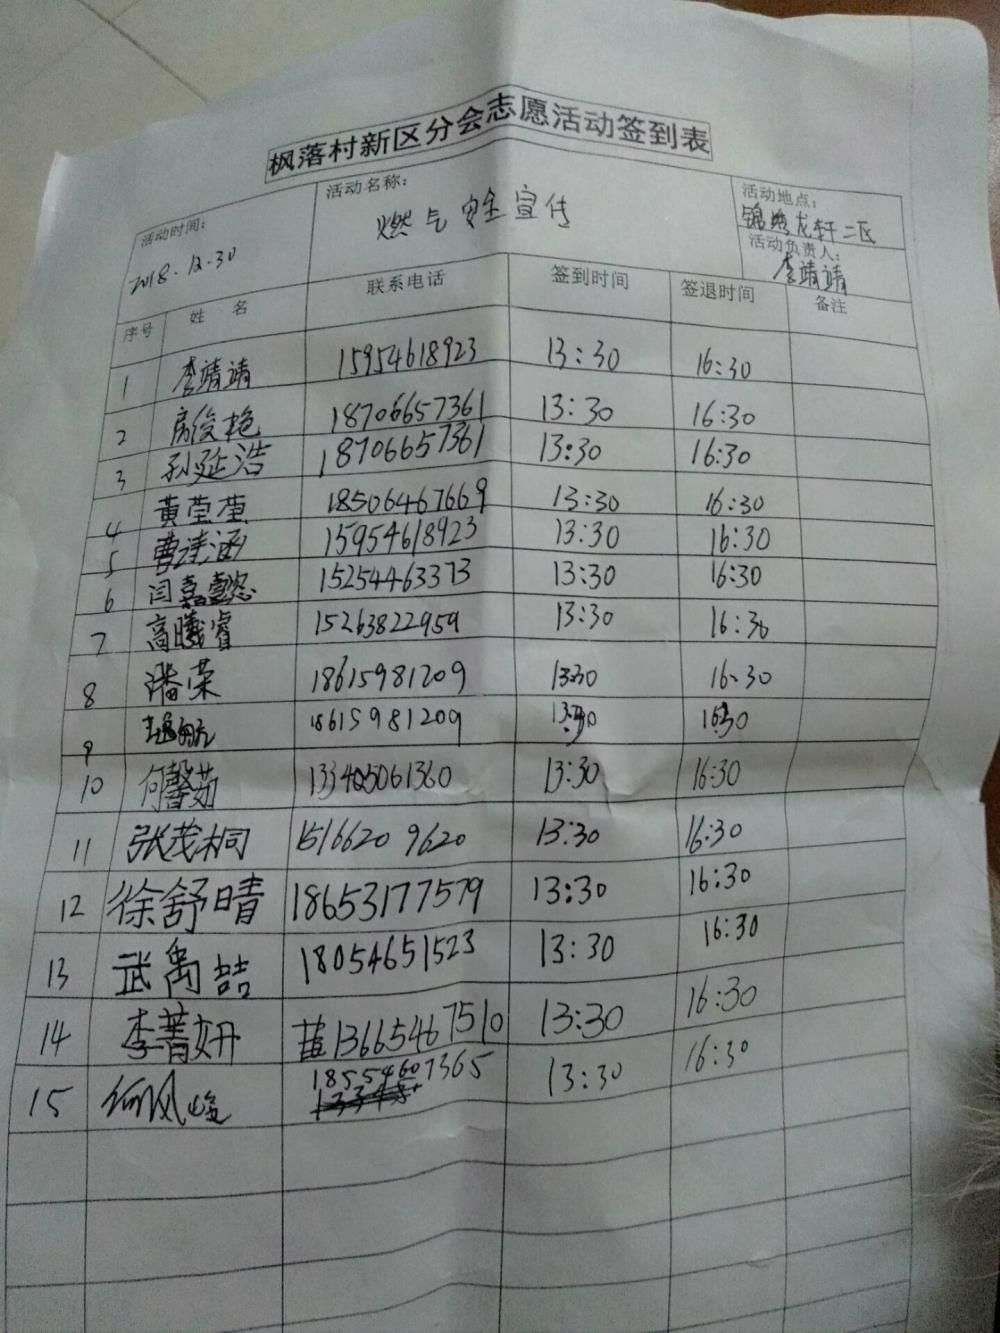 枫落村新区分会志愿活动签到表
活动时间: 2018.12.30
活动名称: 燃气安全宣传
活动地点: 锦绣龙轩二区
活动负责人: 李靖靖
序号 姓 名 联系电话 签到时间 签退时间 备注
1 李靖靖 15954618923 13:30 16:30
2 房俊艳 18706657361 13:30 16:30
3 孙延浩 18706657361 13:30 16:30
4 黄莹莹 18506467669 13:30 16:30
5 曹涵 15954618923 13:30 16:30
6 闫嘉懿 15254463373 13:30 16:30
7 高曦睿 15263822959 13:30 16:30
8 潘荣 18615981209 13:30 16:30
9 18615981209 13:30 16:30
10 何馨茹 13:30 16:30
11 张茂桐 15166209620 13:30 16:30
12 徐舒晴 18653177579 13:30 16:30
13 武禹喆 18054651523 13:30 16:30
14 李菁妍 13665467510 13:30 16:30
15 何风峻 18554607365 13:30 16:30